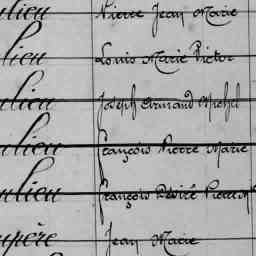 ulieu Pierre Jean Marie
lieu Louis Marie Victor
lieu Joseph Armand Michel
ulieu François Pierre Marie
ulieu François Désiré Pierre M
upère Jean Marie